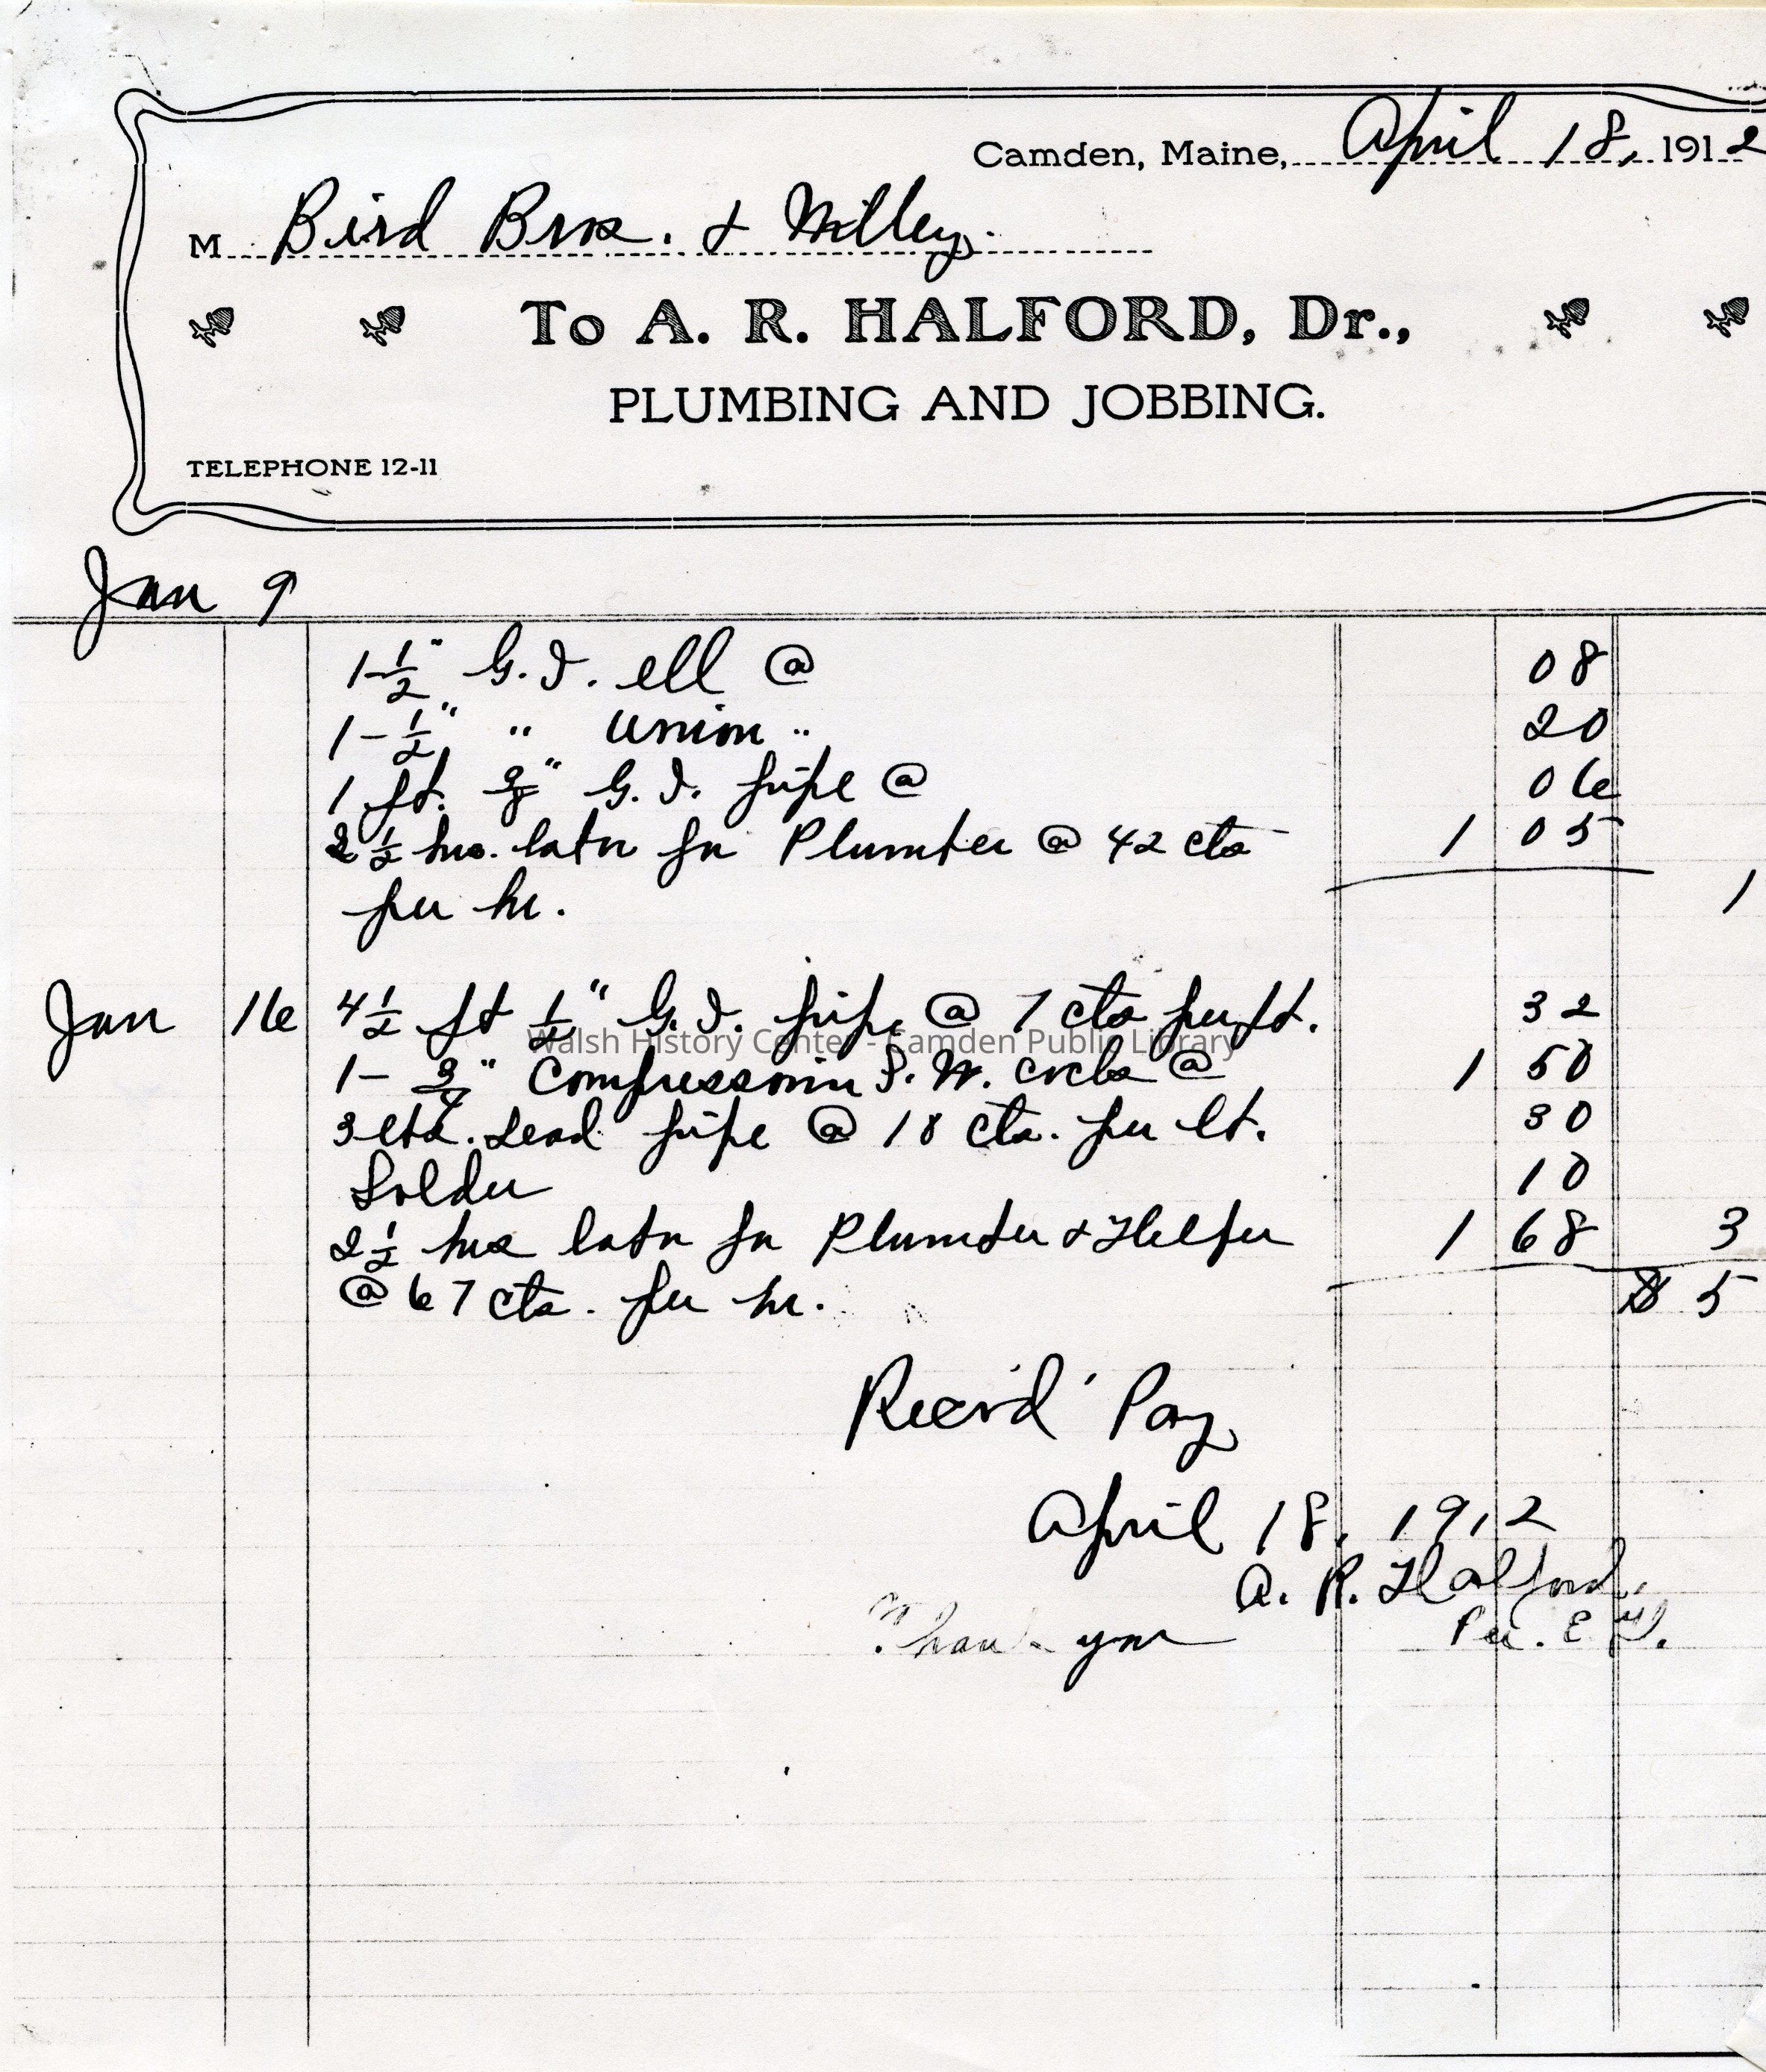 Camden, Maine, April 18, 1912
M Bird Bros. & Willey.
To A. R. HALFORD, Dr.,
PLUMBING AND JOBBING.
TELEPHONE 12-11
Jan 9
1-1/2" G.I. ell @ 08
1-1/2" " Union " 20
1 ft. 3/8" G.I. pipe @ 06
2 1/2 hrs. labor for Plumber @ 42 cts 1 05
per hr. 1
Jan 16 4 1/2 ft 1/2" G.I. pipe @ 7 cts per ft. 32
Walsh History Center - Camden Public Library
1- 3/4" Compression S. W. cocks @ 1 50
3 lbs. Lead pipe @ 10 cts. per lb. 30
Solder 10
2 1/2 hrs labor for Plumber & Helper 1 68 3
@ 67 cts. per hr. $ 5
Rec'd Pay
April 18, 1912
A. R. Halford,
Thank you Per. E